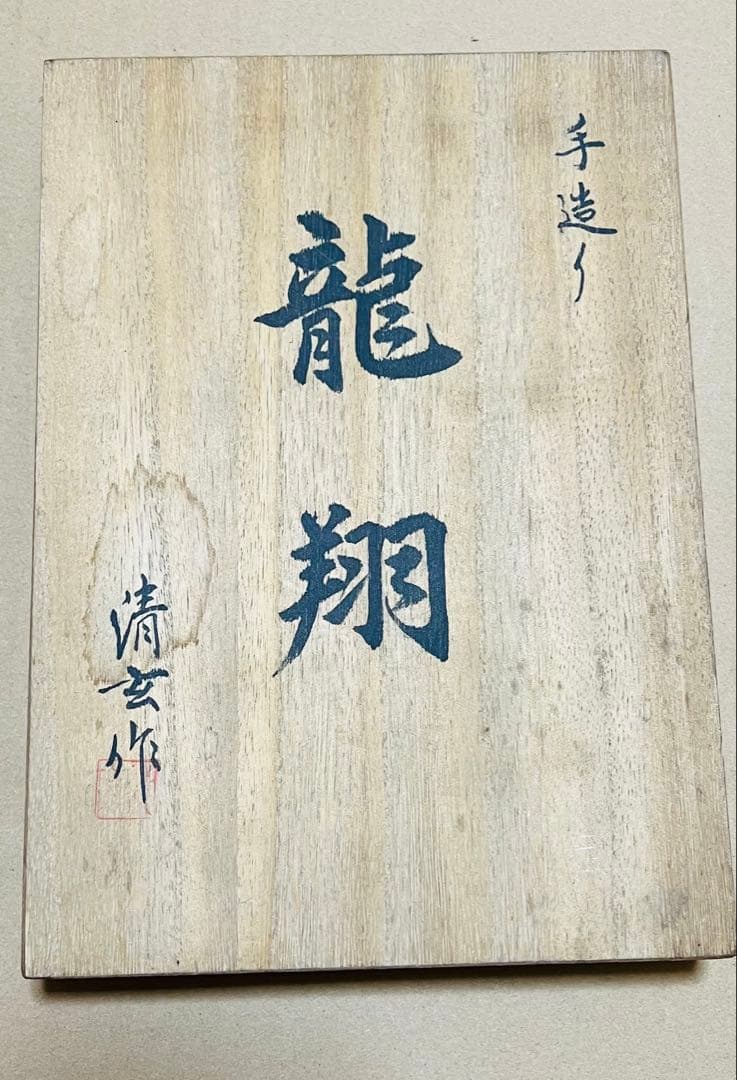 手造り
龍翔
清玄作